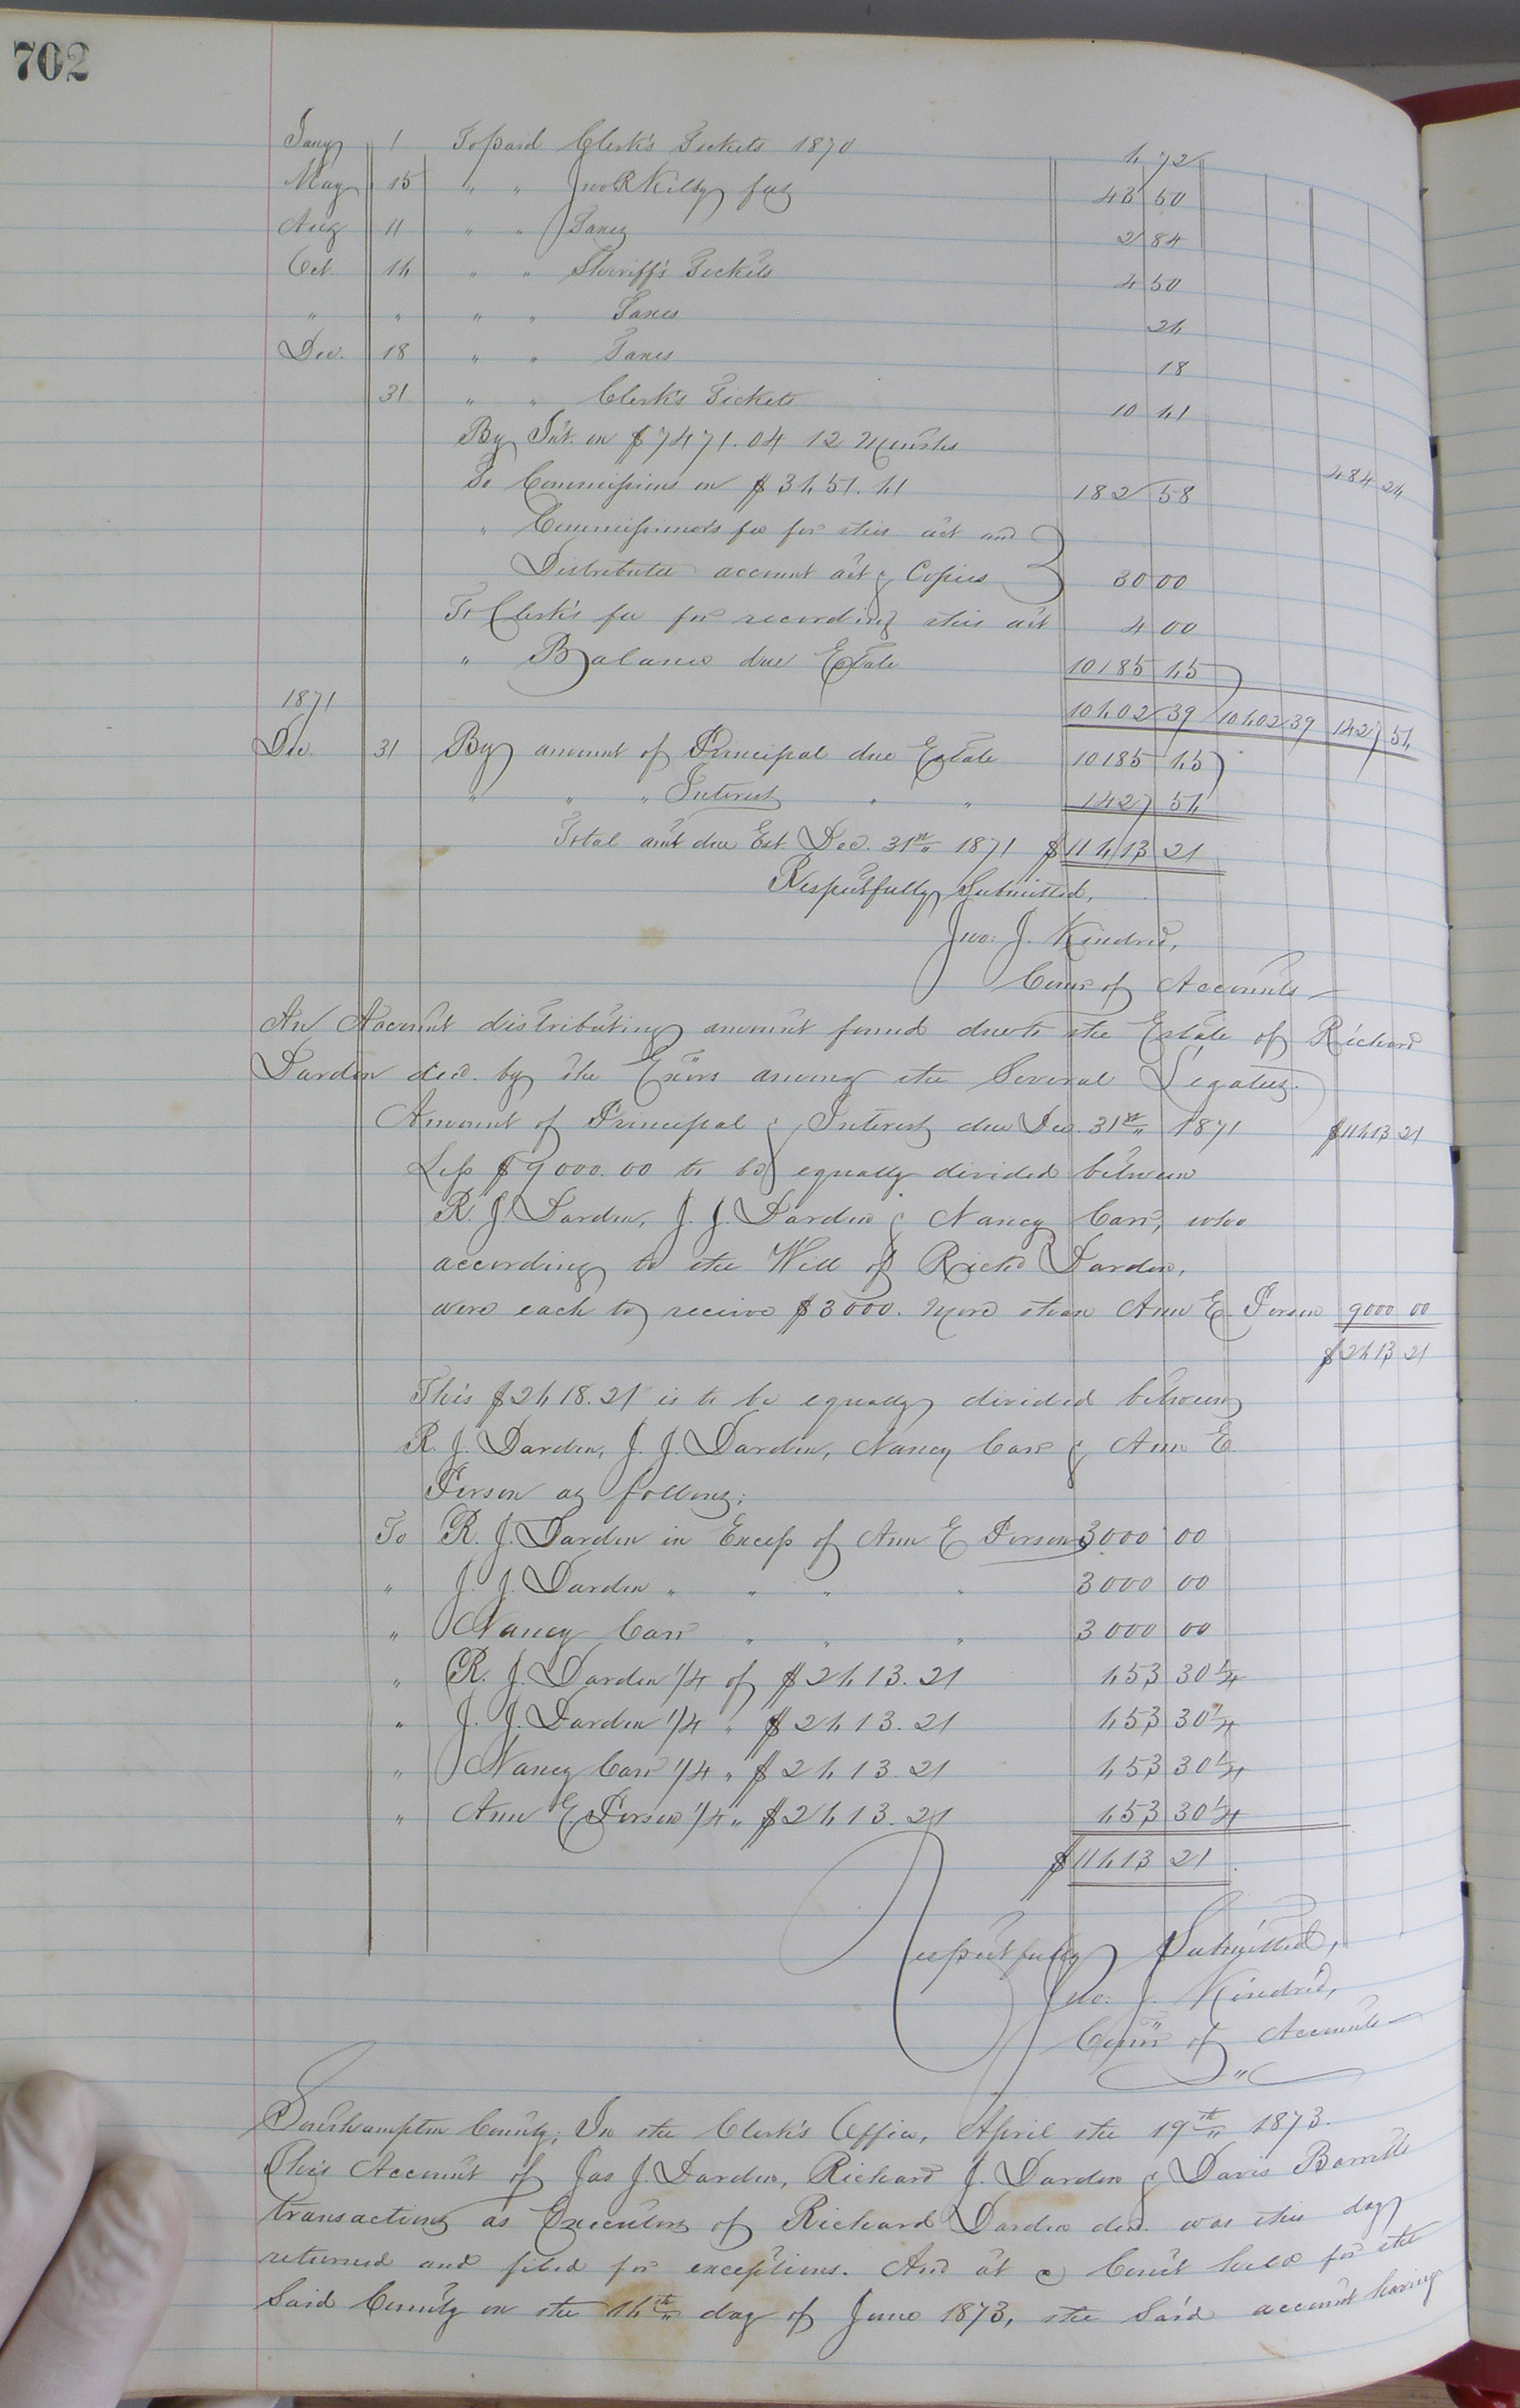 702
Jany 1 To paid Clerk's Tickets 1870 6 72
May 15 " " Jno R Kilby fee 43 50
Aug 11 " " Taxes 2 84
Oct. 16 " " Sheriff's Tickets 4 50
" " " " Taxes 26
Dec. 18 " " Taxes 18
31 " " Clerk's Tickets 10 61
By Int. on $7471.04 12 Months 484 26
To Commissions on $3651.61 182 58
" Commissioner's fee for this act and
Distributee account act & Copies 30 00
To Clerk's fee for recording this act 4 00
" Balance due Estate 10185 65
1871 10602 39 10602 39 1427 56
Dec. 31 By amount of Principal due Estate 10185 65
" " " Interest " " 1427 56
Total amt due Est. Dec. 31st 1871 $11613 21
Respectfully Submitted,
Jno. J. Kindred,
Comr of Accounts
An Account distributing amount found due to the Estate of Richard
Darden decd. by the Exors among the Several Legatees.
Amount of Principal & Interest due Dec. 31st 1871 $11613 21
Less $9000.00 to be equally divided between
R. J. Darden, J. J. Darden & Nancy Carr, who
according to the Will of Richd Darden,
were each to receive $3000. more than Ann E. Person 9000 00
$2613 21
This $2618.21 is to be equally divided between
R. J. Darden, J. J. Darden, Nancy Carr & Ann E.
Person as follows;
To R. J. Darden in Excess of Ann E Person 3000 00
" J. J. Darden " " " " 3000 00
" Nancy Carr " " " 3000 00
" R. J. Darden 1/4 of $2613.21 653 30 1/4
" J. J. Darden 1/4 " $2613.21 653 30 1/4
" Nancy Carr 1/4 " $2613.21 653 30 1/4
" Ann E. Person 1/4 " $2613.21 653 30 1/4
$11613 21
Respectfully Submitted,
Jno. J. Kindred,
Comr of Accounts
Southampton County; In the Clerk's Office, April the 19th 1873.
This Account of Jas J. Darden, Richard J. Darden & Davis Barrett's
transactions as Executors of Richard Darden decd. was this day
returned and filed for exceptions. And at a Court held for the
Said County on the 16th day of June 1873, the Said account having